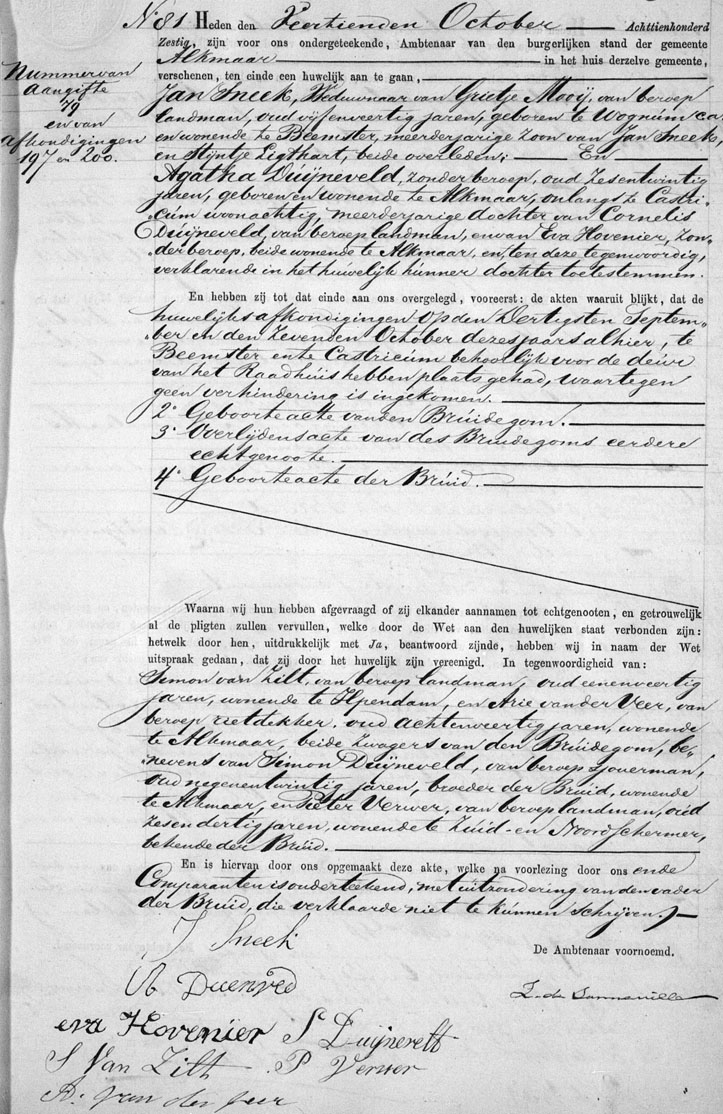 N 81 Heden den Veertienden October Achttienhonderd
Zestig, zijn voor ons ondergeteekende, Ambtenaar van den burgerlijken stand der gemeente
Alkmaar in het huis derzelve gemeente,
verschenen, ten einde een huwelijk aan te gaan,
Nummer van
Aangifte
79
en van
afkondigingen
197 en 200.
Jan Sneek, Weduwnaar van Grietje Mooij, van beroep
landman, oud vijfenveertig jaren, geboren te Wognum ca
en wonende te Beemster, meerderjarige zoon van Jan Sneek,
en Stijntje Ligthart, beide overleden; En
Agatha Duijneveld, zonder beroep, oud Zesentwintig
jaren, geboren en wonende te Alkmaar, onlangs te Castri-
cum woonachtig, meerderjarige dochter van Cornelis
Duijneveld, van beroep landman, en van Eva Hovenier, zon-
der beroep, beide wonende te Alkmaar, en ten deze tegenwoordig,
verklarende in het huwelijk hunner dochter toetestemmen.
En hebben zij tot dat einde aan ons overgelegd, vooreerst: de akten waaruit blijkt, dat de
huwelijks afkondigingen op den Dertigsten Septem-
ber en den Zevenden October dezes jaars alhier, te
Beemster en te Castricum behoorlijk voor de deur
van het Raadhuis hebben plaats gehad, waartegen
geen verhindering is ingekomen.
2° Geboorte acte van den Bruidegom.
3° Overlijdensacte van des Bruidegoms eerdere
echtgenoote.
4° Geboorteacte der Bruid.
Waarna wij hun hebben afgevraagd of zij elkander aannamen tot echtgenooten, en getrouwelijk
al de pligten zullen vervullen, welke door de Wet aan den huwelijken staat verbonden zijn:
hetwelk door hen, uitdrukkelijk met Ja, beantwoord zijnde, hebben wij in naam der Wet
uitspraak gedaan, dat zij door het huwelijk zijn vereenigd. In tegenwoordigheid van:
Simon van Zilt, van beroep landman, oud eenenveertig
jaren, wonende te Ilpendam, en Arie van der Veer, van
beroep rietdekker, oud achtenveertig jaren, wonende
te Alkmaar, beide zwagers van den Bruidegom, be-
nevens van Simon Duijneveld, van beroep sjouwerman,
oud negenentwintig jaren, broeder der Bruid, wonende
te Alkmaar, en Pieter Verwer, van beroep landman, oud
zesendertig jaren, wonende te Zuid- en Noord schermer,
bekende der Bruid.
En is hiervan door ons opgemaakt deze akte, welke na voorlezing door ons ende
Comparanten is onderteekend, met uitzondering van den vader
der Bruid, die verklaarde niet te kunnen schrijven.
J Sneek
De Ambtenaar voornoemd.
A Duenved
eva Hovenier S Duijnevelt
S Van Zilt P Verwer
A. van der veer